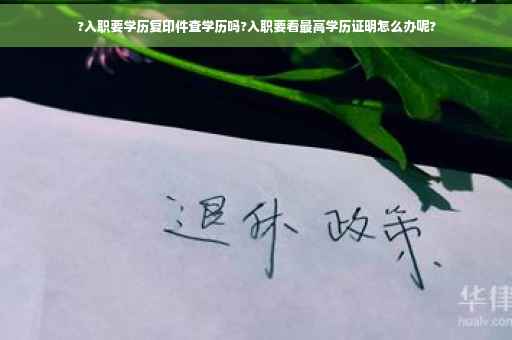 ?入职要学历复印件查学历吗?入职要看最高学历证明怎么办呢?
退休 政策
华律
hualv.com